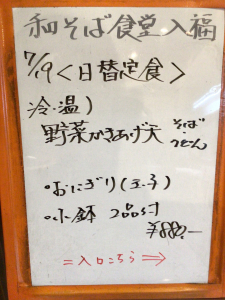 和そば食堂 入福
7/19 <日替定食>
冷・温)
野菜かきあげ天 そば・うどん
・おにぎり(玉子)
・小鉢 2品付
¥880.-
=入口こちら⇒